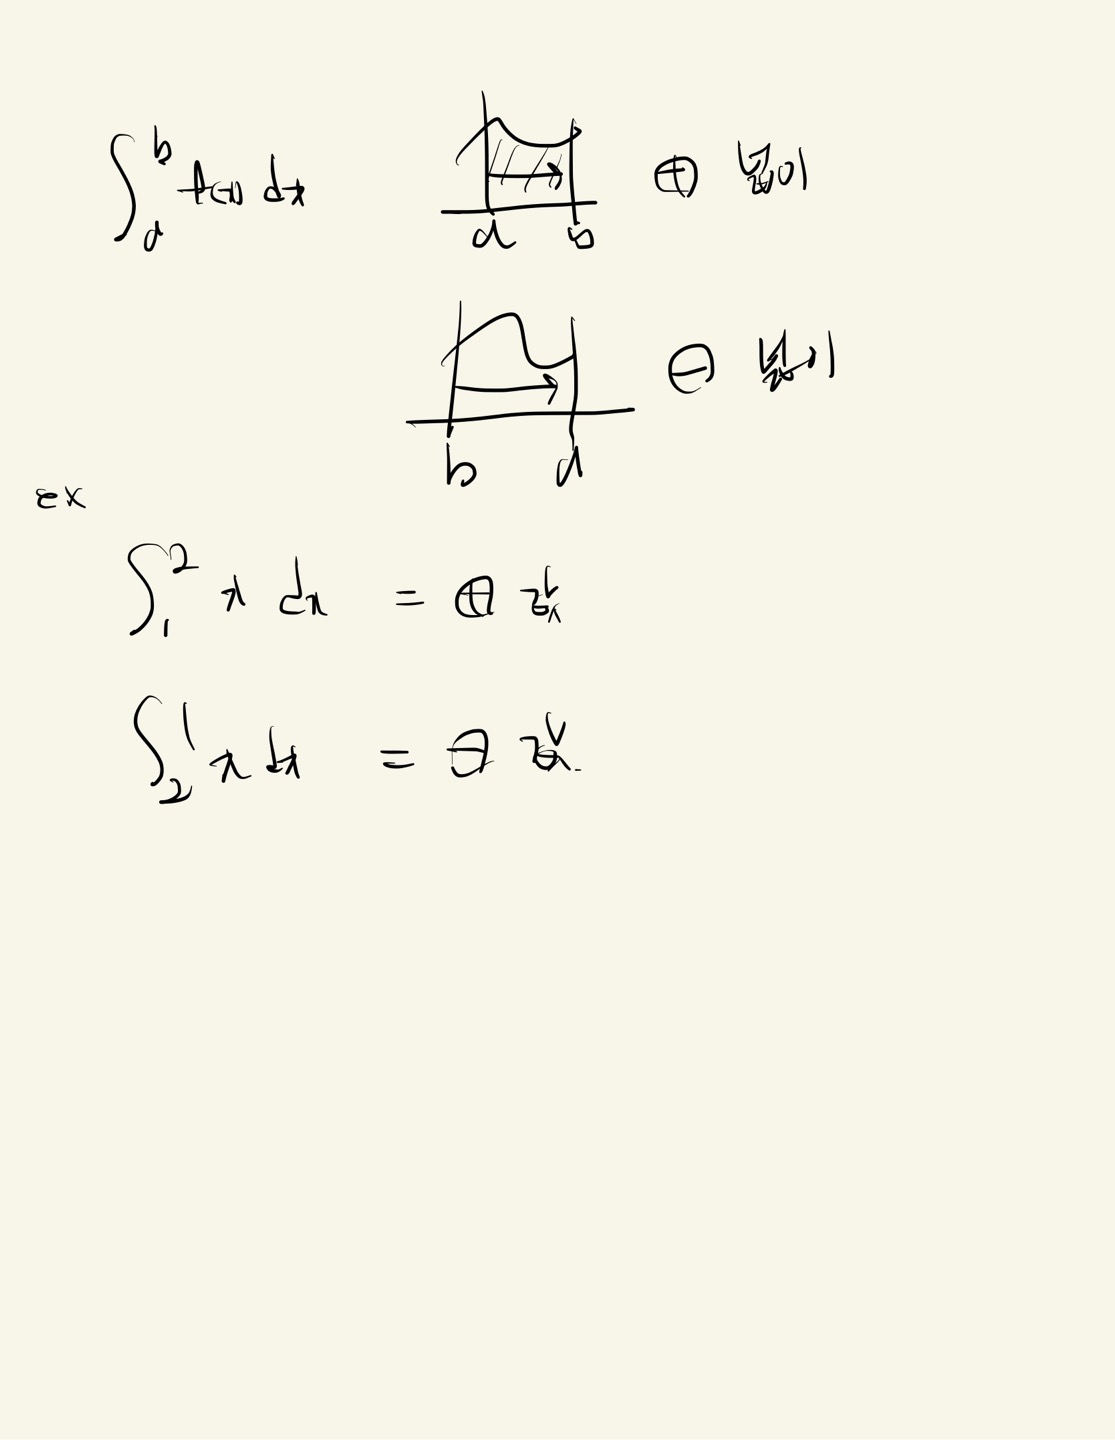 ∫_a^b f(x) dx a b ⊕ 넓이
b a ⊖ 넓이
ex
∫_1^2 x dx = ⊕
∫_2^1 x dx = ⊖